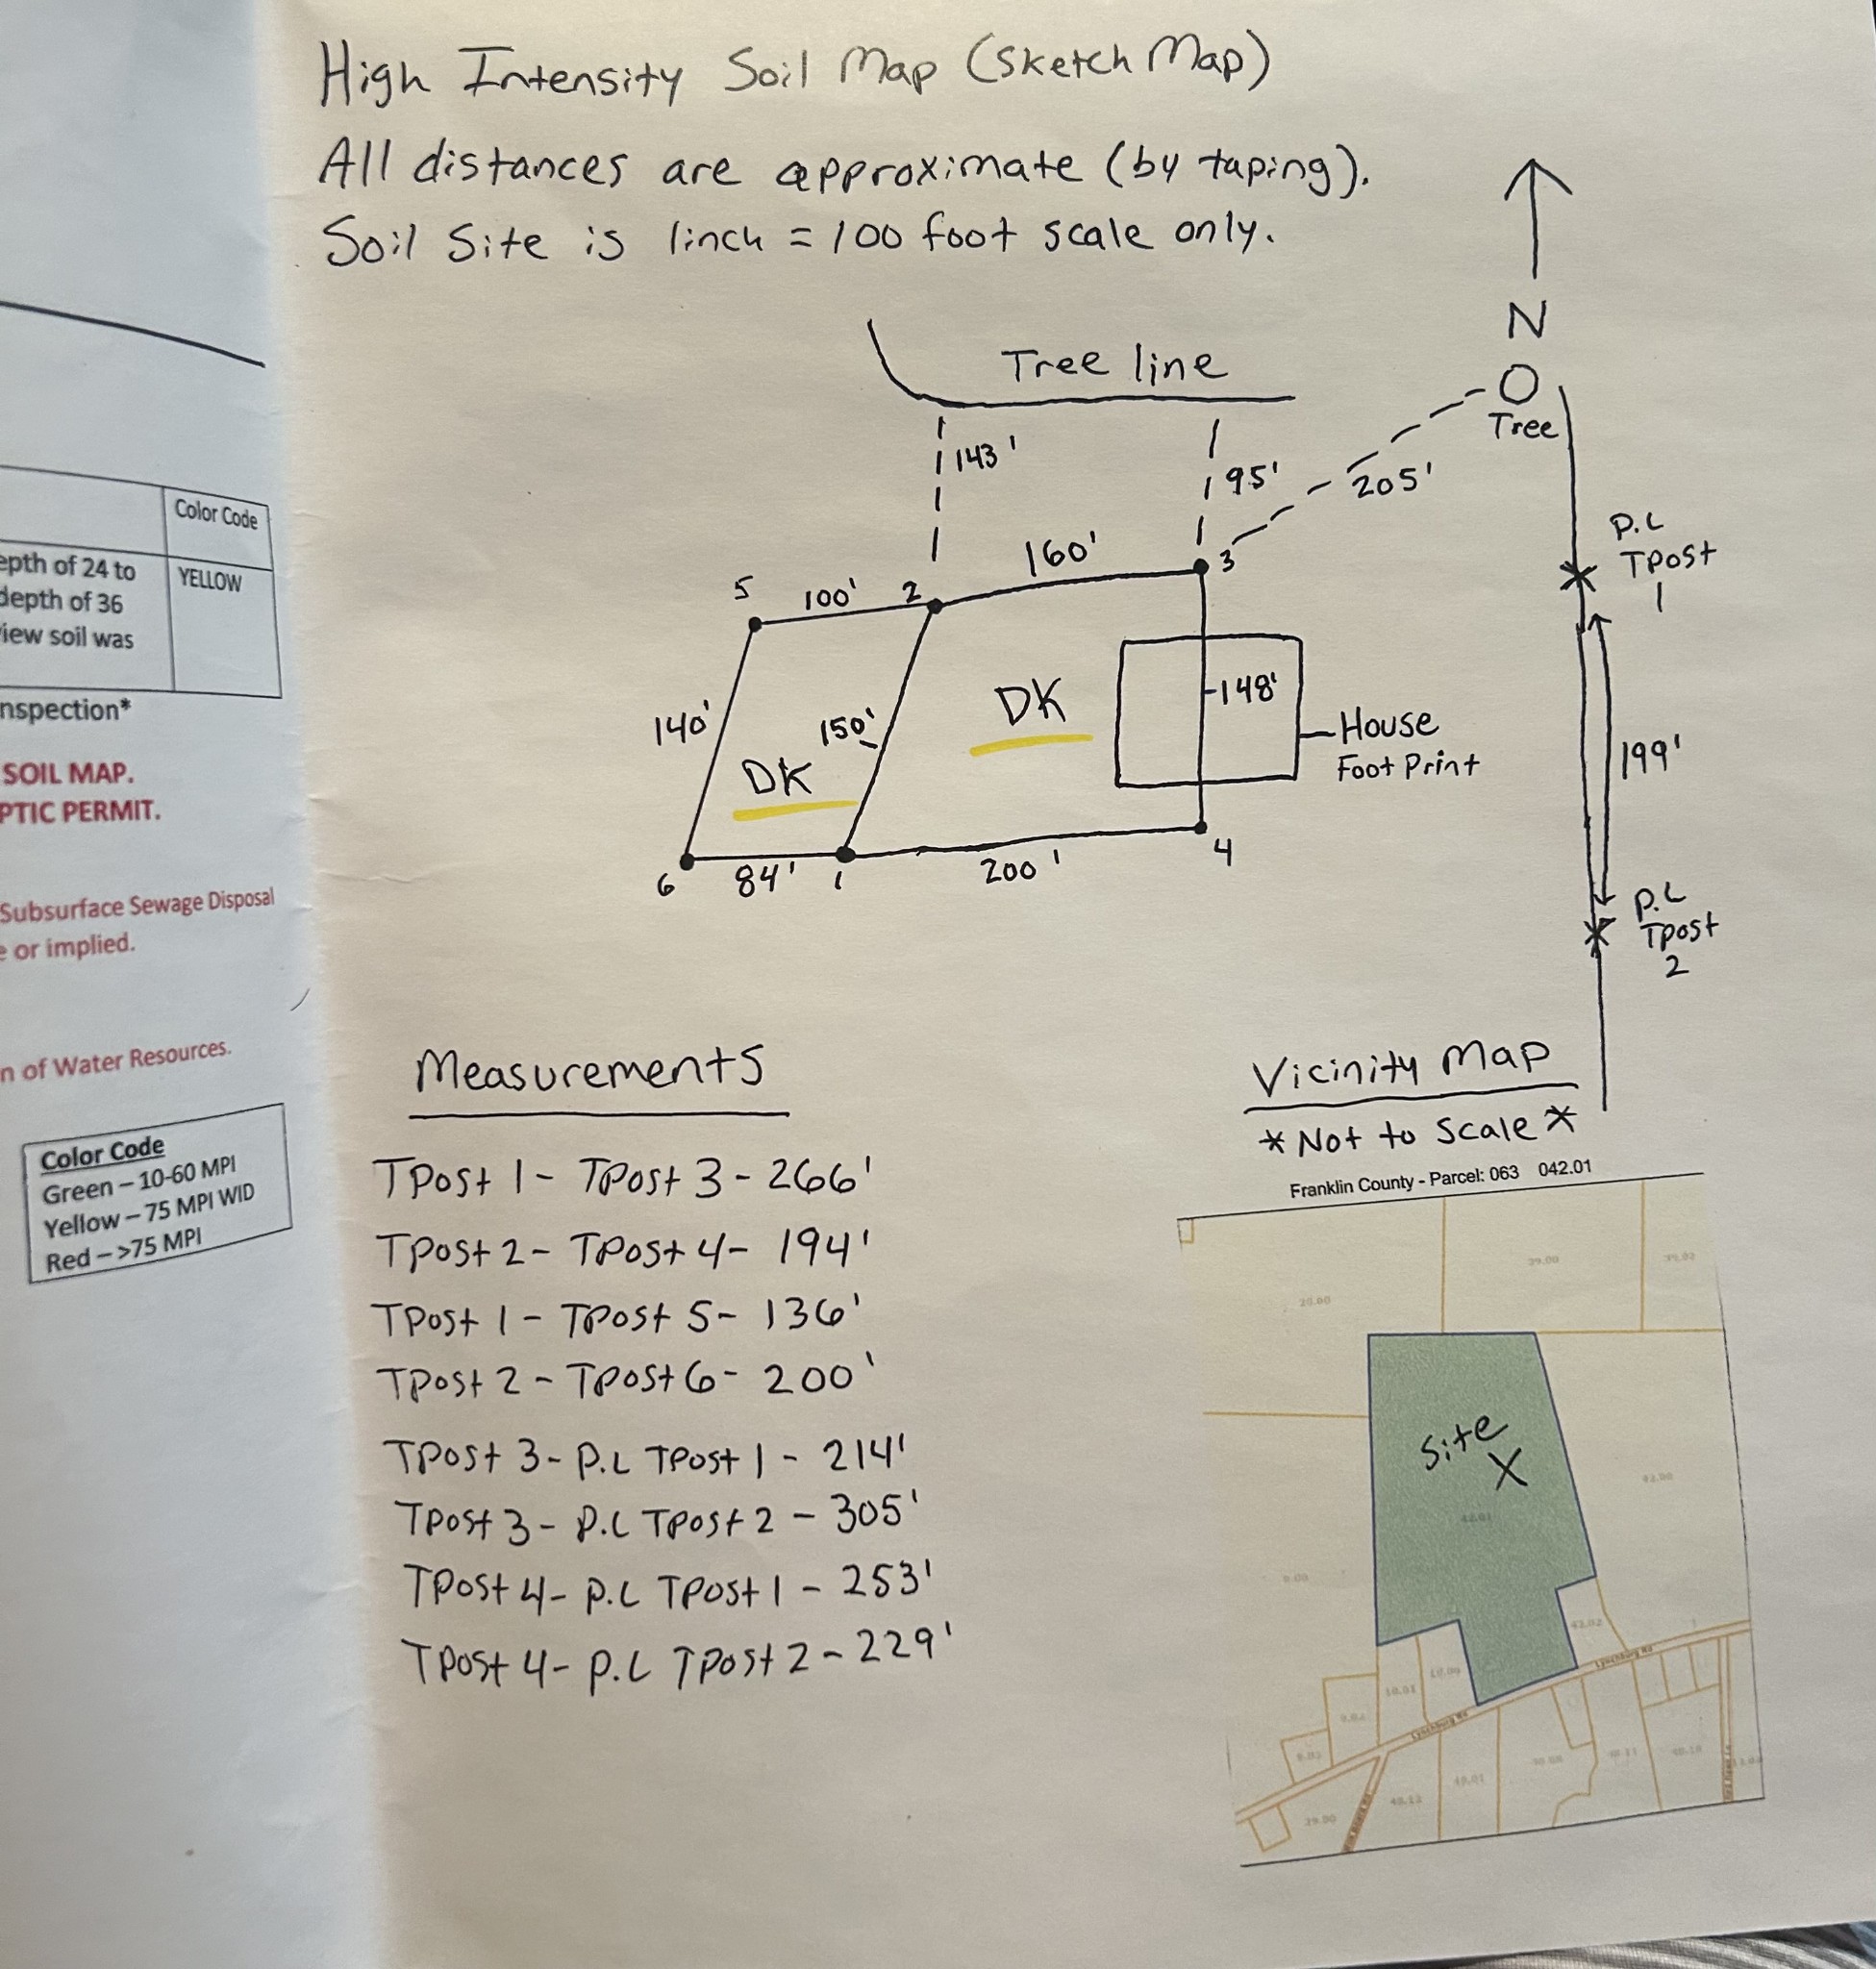 High Intensity Soil Map (Sketch Map)
All distances are approximate (by taping).
Soil Site is 1inch = 100 foot scale only.
N
Tree line
Tree
143'
95'
205'
P.L
TPost
1
5
100'
2
160'
3
140'
150'
DK
DK
148'
House
Foot Print
199'
6
84'
1
200'
4
P.L
TPost
2
Color Code
epth of 24 to
YELLOW
depth of 36
view soil was
nspection*
SOIL MAP.
PTIC PERMIT.
Subsurface Sewage Disposal
e or implied.
n of Water Resources.
Color Code
Green – 10-60 MPI
Yellow – 75 MPI WID
Red – >75 MPI
Measurements
TPost 1 - TPost 3 - 266'
TPost 2 - TPost 4 - 194'
TPost 1 - TPost 5 - 136'
TPost 2 - TPost 6 - 200'
TPost 3 - P.L TPost 1 - 214'
TPost 3 - P.L TPost 2 - 305'
TPost 4 - P.L TPost 1 - 253'
TPost 4 - P.L TPost 2 - 229'
Vicinity Map
* Not to Scale *
Franklin County - Parcel: 063 042.01
20.00
39.00
39.02
Site
X
42.01
42.02
10.01
Lynchburg Rd
Lynchburg Rd